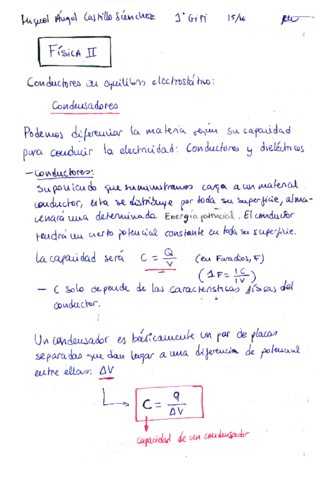 Miguel Ángel Castillo Sánchez 1º GITI 15/16
FÍSICA II
Conductores en equilibrio electrostático:
Condensadores
Podemos diferenciar la materia según su capacidad
para conducir la electricidad: Conductores y dieléctricos
- conductores:
Suponiendo que suministramos carga a un material
conductor, esta se distribuye por toda su superficie, alma-
cenará una determinada Energía potencial. El conductor
tendrá un cierto potencial constante en toda su superficie.
La capacidad será C = Q/V (en Faradios, F)
(1F = 1C/1V)
- C solo depende de las características físicas del
conductor.
Un condensador es básicamente un par de placas
separadas que dan lugar a una diferencia de potencial
entre ellas: ΔV
C = q/ΔV
capacidad de un condensador